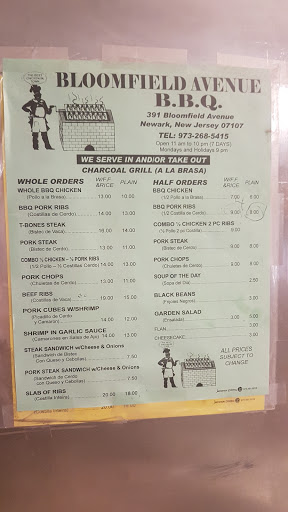 BLOOMFIELD AVENUE
B.B.Q.
391 Bloomfield Avenue
Newark, New Jersey 07107
TEL: 973-268-5415
Open 11 am to 10 pm (7 DAYS)
Mondays and Holidays 9 pm
WE SERVE IN AND/OR TAKE OUT
CHARCOAL GRILL (A LA BRASA)
WHOLE ORDERS W/F.F. &RICE PLAIN
WHOLE BBQ CHICKEN
(Pollo a la Brasa) 13.00 10.00
BBQ PORK RIBS
(Costillas de Cerdo) 14.00 13.00
T-BONES STEAK
(Bistec de Vaca) 16.00 14.00
PORK STEAK
(Bistec de Cerdo) 13.00 11.00
COMBO ½ CHICKEN - ½ PORK RIBS
(1/2 Pollo - ½ Costillas Cerdo) 14.00 13.00
PORK CHOPS
(Chuletas de Cerdo) 13.00 11.00
BEEF RIBS
(Costillas de Vaca) 19.00 15.00
PORK CUBES W/SHRIMP
(Picadito de Cerdo
y Camaron) 14.00 13.00
SHRIMP IN GARLIC SAUCE
(Camarones en Salsa de Ajo) 14.00 13.00
STEAK SANDWICH w/Cheese & Onions
(Sandwich de Bistec
Con Queso y Cebollas) 7.50
PORK STEAK SANDWICH w/Cheese & Onions
(Sandwich de Cerdo
con Queso y Cebollas) 7.50
SLAB OF RIBS
(Costilla Intera) 20.00 18.00
HALF ORDERS W/F.F. &RICE PLAIN
BBQ CHICKEN
(1/2 Pollo a la Brasa) 7.00 6.00
BBQ PORK RIBS
(1/2 Costillas de Cerdo) 9.00 8.00
COMBO ½ CHICKEN 2 PC RIBS
9.00 8.00
PORK STEAK
(Bistec de Cerdo) 9.00 8.00
PORK CHOPS
(Chuletas de Cerdo) 9.00 8.00
SOUP OF THE DAY
(Sopa del Dia) 2.50
BLACK BEANS
(Frijoles Negros) 3.50
GARDEN SALAD
(Ensalada) 3.00 6.00
FLAN
CHEESECAKE
ALL PRICES
SUBJECT TO
CHANGE